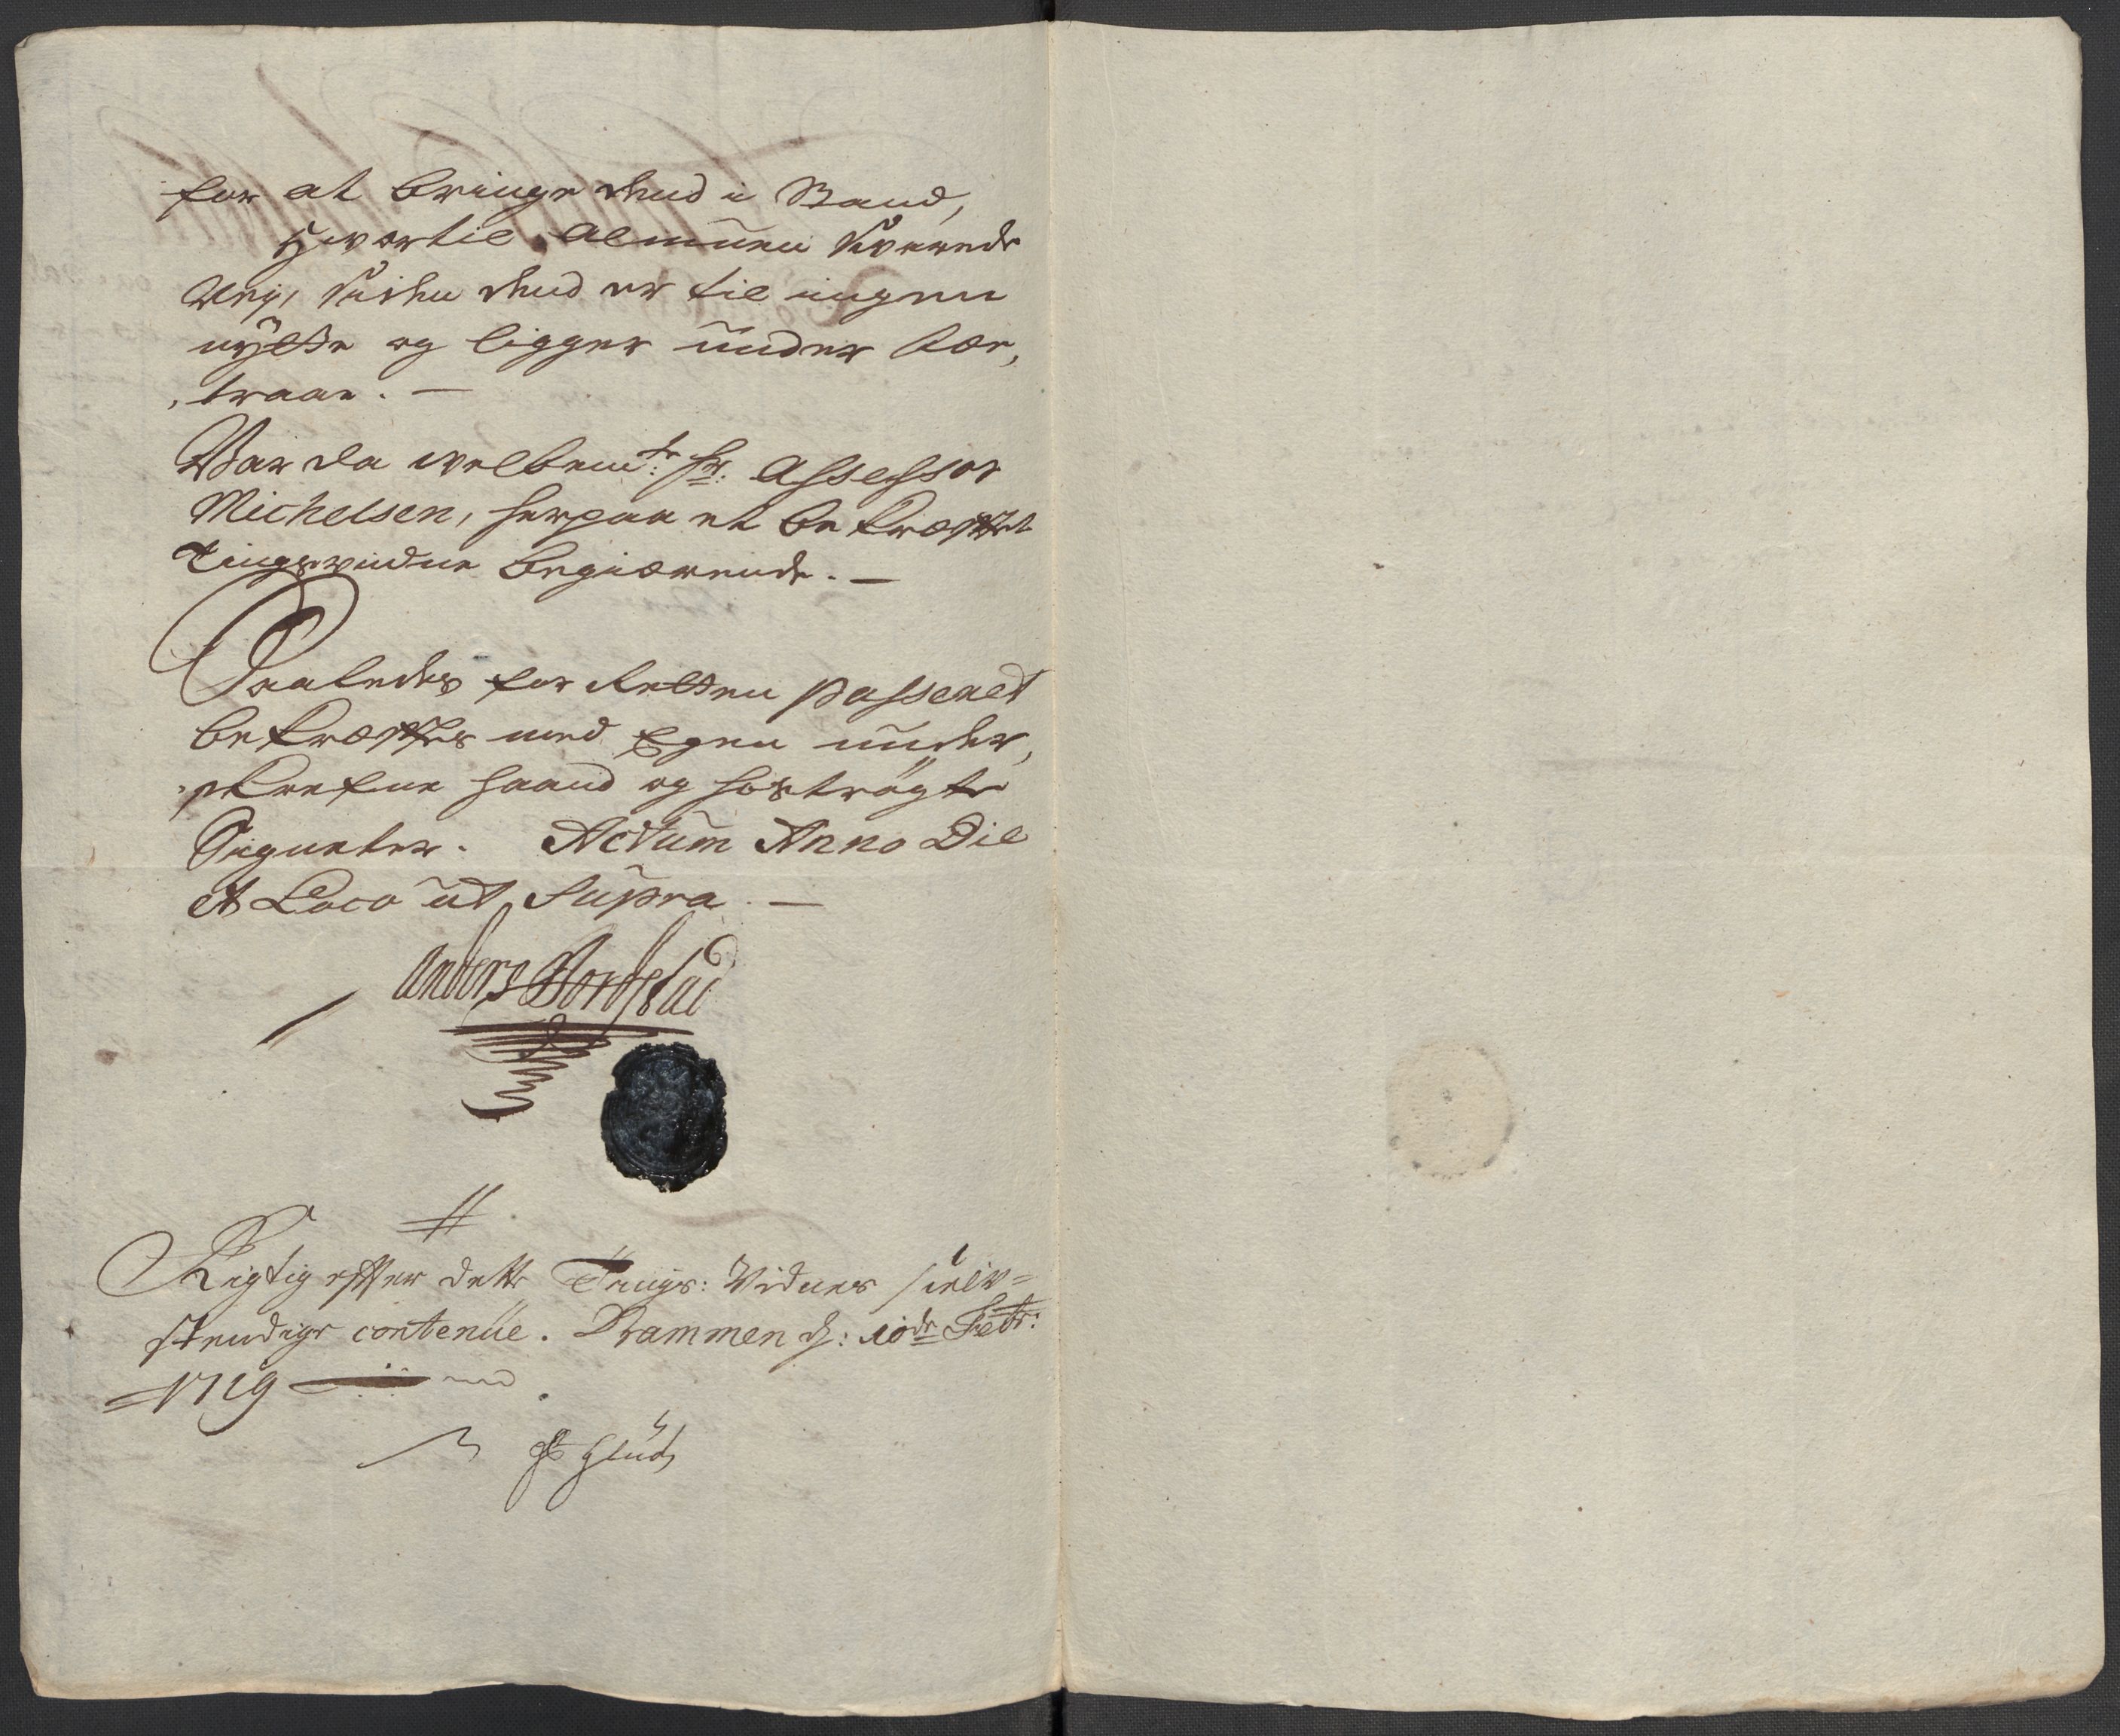 for at bringe dend i Stand,
Hvortil Almuen Svarede
Neÿ, siden dend er til ingen
nÿtte og ligger under
traae. —
Var da velbemte: Hr: Assessor
Michelsen, herpaa et bekræfftet
Tingsvidne begiærende. —
Saaledes for Retten passeret
bekræfftes med Egen under,
skrefne haand og hoströgte
Signeter. Actum Anno Die
et Loco ut Supra. —
Anders Nordstad
Rigtig effter dette Tings: Vidnes sielv=
stendige contenue. Drammen d: 10de Febr:
1719
Glud